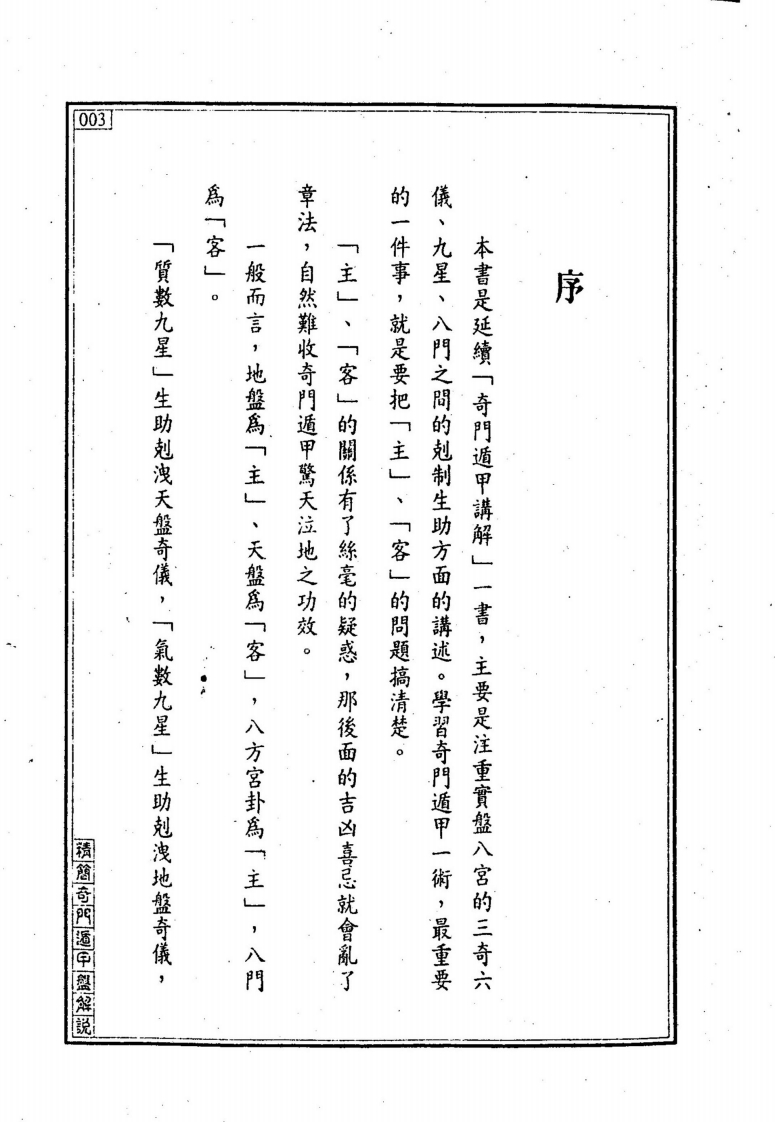 003
序
本書是延續「奇門遁甲講解」一書，主要是注重實盤八宮的三奇六
儀、九星、八門之間的剋制生助方面的講述。學習奇門遁甲一術，最重要
的一件事，就是要把「主」、「客」的問題搞清楚。
「主」、「客」的關係有了絲毫的疑惑，那後面的吉凶喜忌就會亂了
章法，自然難收奇門遁甲驚天泣地之功效。
一般而言，地盤爲「主」、天盤爲「客」，八方宮卦爲「主」，八門
爲「客」。
「質數九星」生助剋洩天盤奇儀，「氣數九星」生助剋洩地盤奇儀，
精簡奇門遁甲盤解說